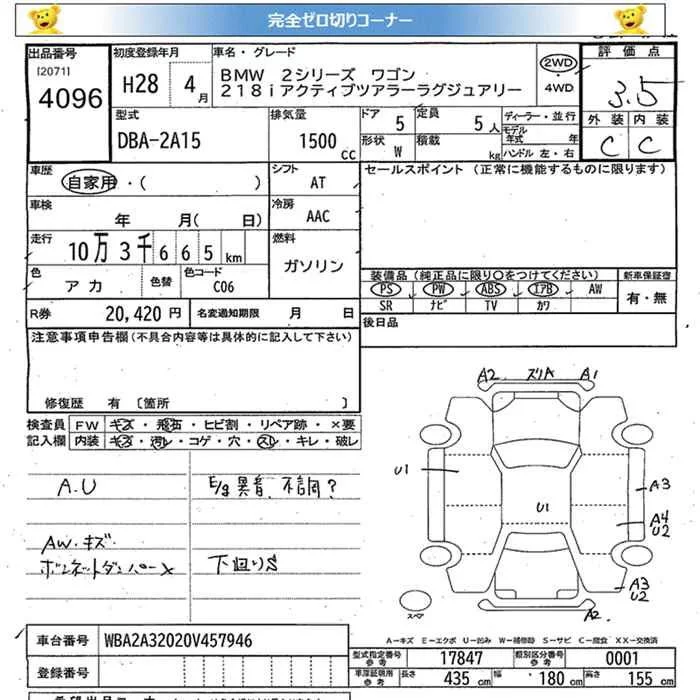 完全ゼロ切りコーナー
出品番号
[2071]
4096
初度登録年月
H28 4月
車名・グレード
BMW 2シリーズ ワゴン
218iアクティブツアラーラグジュアリー
2WD
・
4WD
評価点
3.5
外装 内装
C C
型式
DBA-2A15
排気量
1500 cc
ドア 5
定員 5人
形状 W
積載 kg
ディーラー・並行
モデル年式 年
ハンドル 左・右
車歴
自家用・( )
シフト
AT
車検
年 月( 日)
冷房
AAC
走行
10万3千665km
燃料
ガソリン
色
アカ
色替
色コード
C06
R券 20,420円
名変通知期限 月 日
セールスポイント (正常に機能するものに限ります)
装備品(純正品に限り○をつけてください)
新車保証書
PS PW ABS エアB AW
SR ナビ TV カワ
有・無
後日品
注意事項申告欄(不具合内容等は具体的に記入して下さい)
修復歴 有 [箇所 ]
検査員記入欄
FW キズ・飛石・ヒビ割・リペア跡・×要
内装 キズ・汚レ・コゲ・穴・スレ・キレ・破レ
A.U
E/g異音、不調?
AW.キズ
ボンネットダンパー×
下廻りS
A2 スリA A1
U1
U1
A3
A4
U2
A3
U2
A2
スペア
A-キズ E-エクボ U-凹み W-補修跡 S-サビ C-腐食 XX-交換済
車台番号 WBA2A32020V457946
登録番号
型式指定番号 参考 17847
類別区分番号 参考 0001
車検証明用 参考 長さ 435 cm 幅 180 cm 高さ 155 cm